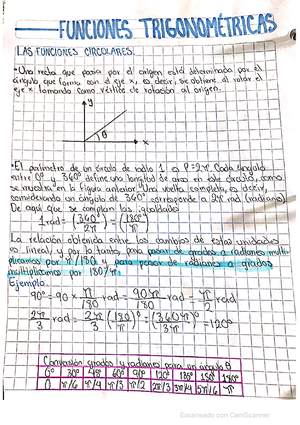 FUNCIONES TRIGONOMÉTRICAS
LAS FUNCIONES CIRCULARES.
•Una recta que pasa por el origen está determinada por el
ángulo que forma con el eje x, es decir, se obtiene al rotar el
eje x tomando como vértice de rotación al origen.
y
θ
x
•El perímetro de un círculo de radio 1 es P=2π. Cada ángulo
entre 0° y 360° define una longitud de arco en este círculo, como
se muestra en la figura anterior. Una vuelta completa, es decir,
considerando un ángulo de 360° corresponde a 2π rad (radianes)
De aquí que se cumplan las igualdades
1rad = (360°/2π) = (180°/π)
La relación obtenida entre los cambios de estas unidades
es lineal y por lo tanto, para pasar de grados a radianes multi-
plicamos por π/180 y para pasar de radianes a grados
multiplicamos por 180/π.
Ejemplo.
90° = 90 x π/180 rad = 90π/180 rad = π/2 rad
2π/3 rad = 2π/3 (180/π)° = (360π/3π)° = 120°
Conversión grados y radianes para un ángulo θ
0° 30° 45° 60° 90° 120° 135° 150° 180°
0 π/6 π/4 π/3 π/2 2π/3 3π/4 5π/6 π
Escaneado con CamScanner